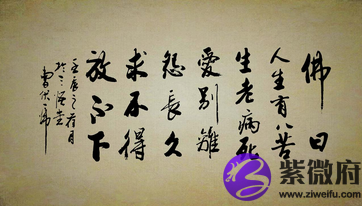 佛曰
人生有八苦
生老病死
愛别離
怨長久
求不得
放不下
壬辰之荷月
紫微府
www.ziweifu.com